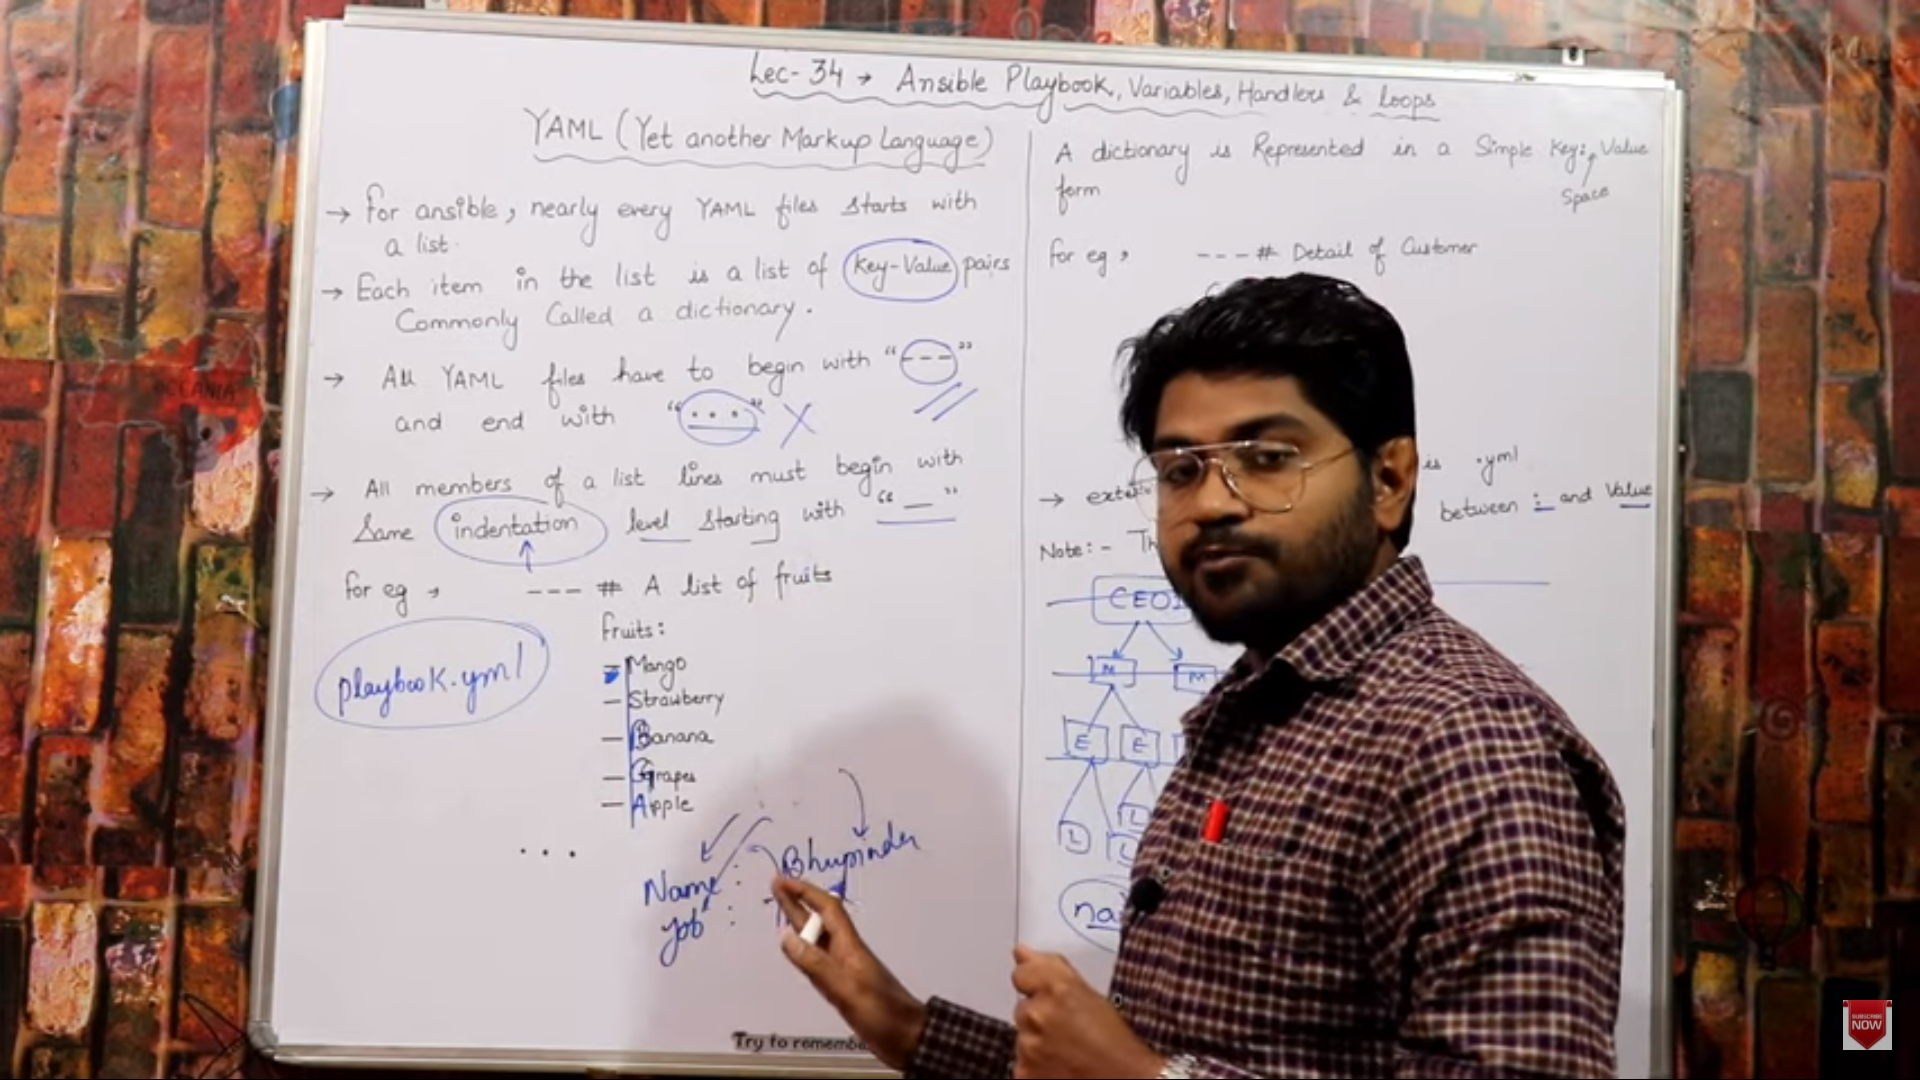 Lec-34 → Ansible Playbook, Variables, Handlers & Loops
YAML (Yet another Markup Language)
→ For ansible, nearly every YAML files starts with
a list.
→ Each item in the list is a list of Key-Value pairs
Commonly Called a dictionary.
→ All YAML files have to begin with "---"
and end with "..." X
→ All members of a list lines must begin with
Same indentation level starting with "—"
for eg, --- # A list of fruits
playbook.yml
fruits:
— Mango
— Strawberry
— Banana
— Grapes
— Apple
...
Name : Bhupinder
Job :
Try to
A dictionary is Represented in a Simple Key: Value
form
Space
for eg, --- # Detail of Customer
→ is .yml
Note:- between : and Value
CEO
M M
E E
L L
L
SUBSCRIBE
NOW